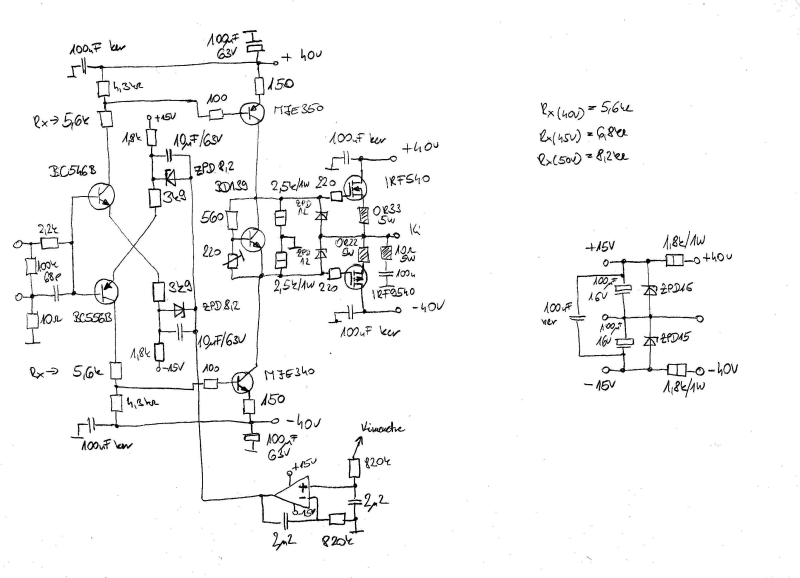 100µF
63V
100µF ker
+ 40V
4,3kΩ
150
Rx → 5,6k
100
MJE350
+15V
1,8k
10µF/63V
100uF ker
+40V
ZPD 8,2
BC546B
BD139
2,5k/1W
220
IRF540
3k9
560
ZPD
12
0R33
5W
Ki
2,2k
220
0R22
5W
10Ω
5W
100k
68p
ZPD
12
100n
3k9
2,5k/1W
220
IRF9540
BC556B
ZPD 8,2
-40V
10Ω
10µF/63V
100uF ker
1,8k
-15V
Rx → 5,6k
100
MJE340
4,3kΩ
150
- 40V
100uF ker
100µF
63V
Kimenetre
+15V
820k
+
-
-15V
2µ2
2µ2
820k
Rx(40V) = 5,6kΩ
Rx(45V) = 6,8kΩ
Rx(50V) = 8,2kΩ
+15V
1,8k/1W
+40V
100µF
16V
ZPD16
100uF
ker
100µF
16V
ZPD15
-15V
1,8k/1W
-40V